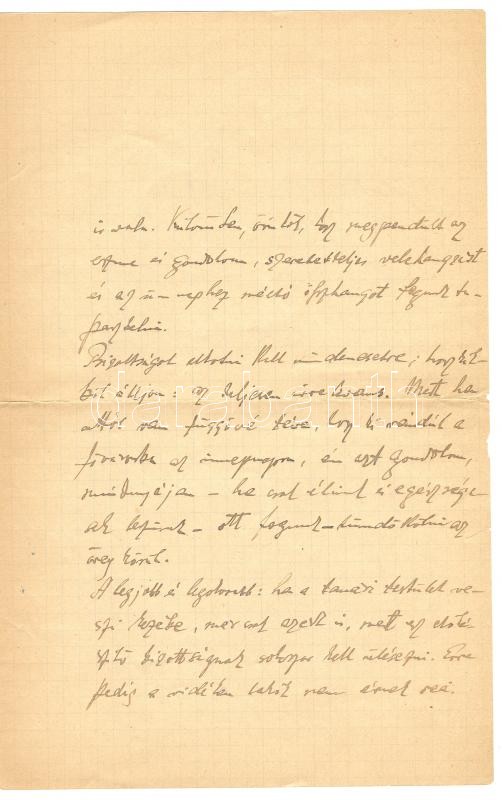 is volna. Különben, örülök, hogy megpendült az
eszme és gondolom, szeretetteljes
és az ü-nephez méltó összhangot fogunk ta-
pasztalni.
Bizottságot alkotni kell mindenesetre; hogy kik-
ből álljon: az teljesen irreleváns. Mert ha
attól van függővé téve, hogy ki rendül a
fővárosba az ünnepnapra, én azt gondolom,
mindnyájan – ha csak élünk és egészsége-
sek leszünk – ott fogunk tündökölni az
öreg körül.
A legjobb és legokosabb: ha a tanári testület ve-
szi kezébe, már csak azért is, mert az előké-
szítő bizottságnak sokszor kell ülésezni. Erre
pedig a vidéken lakók nem érnek reá.
darabanth